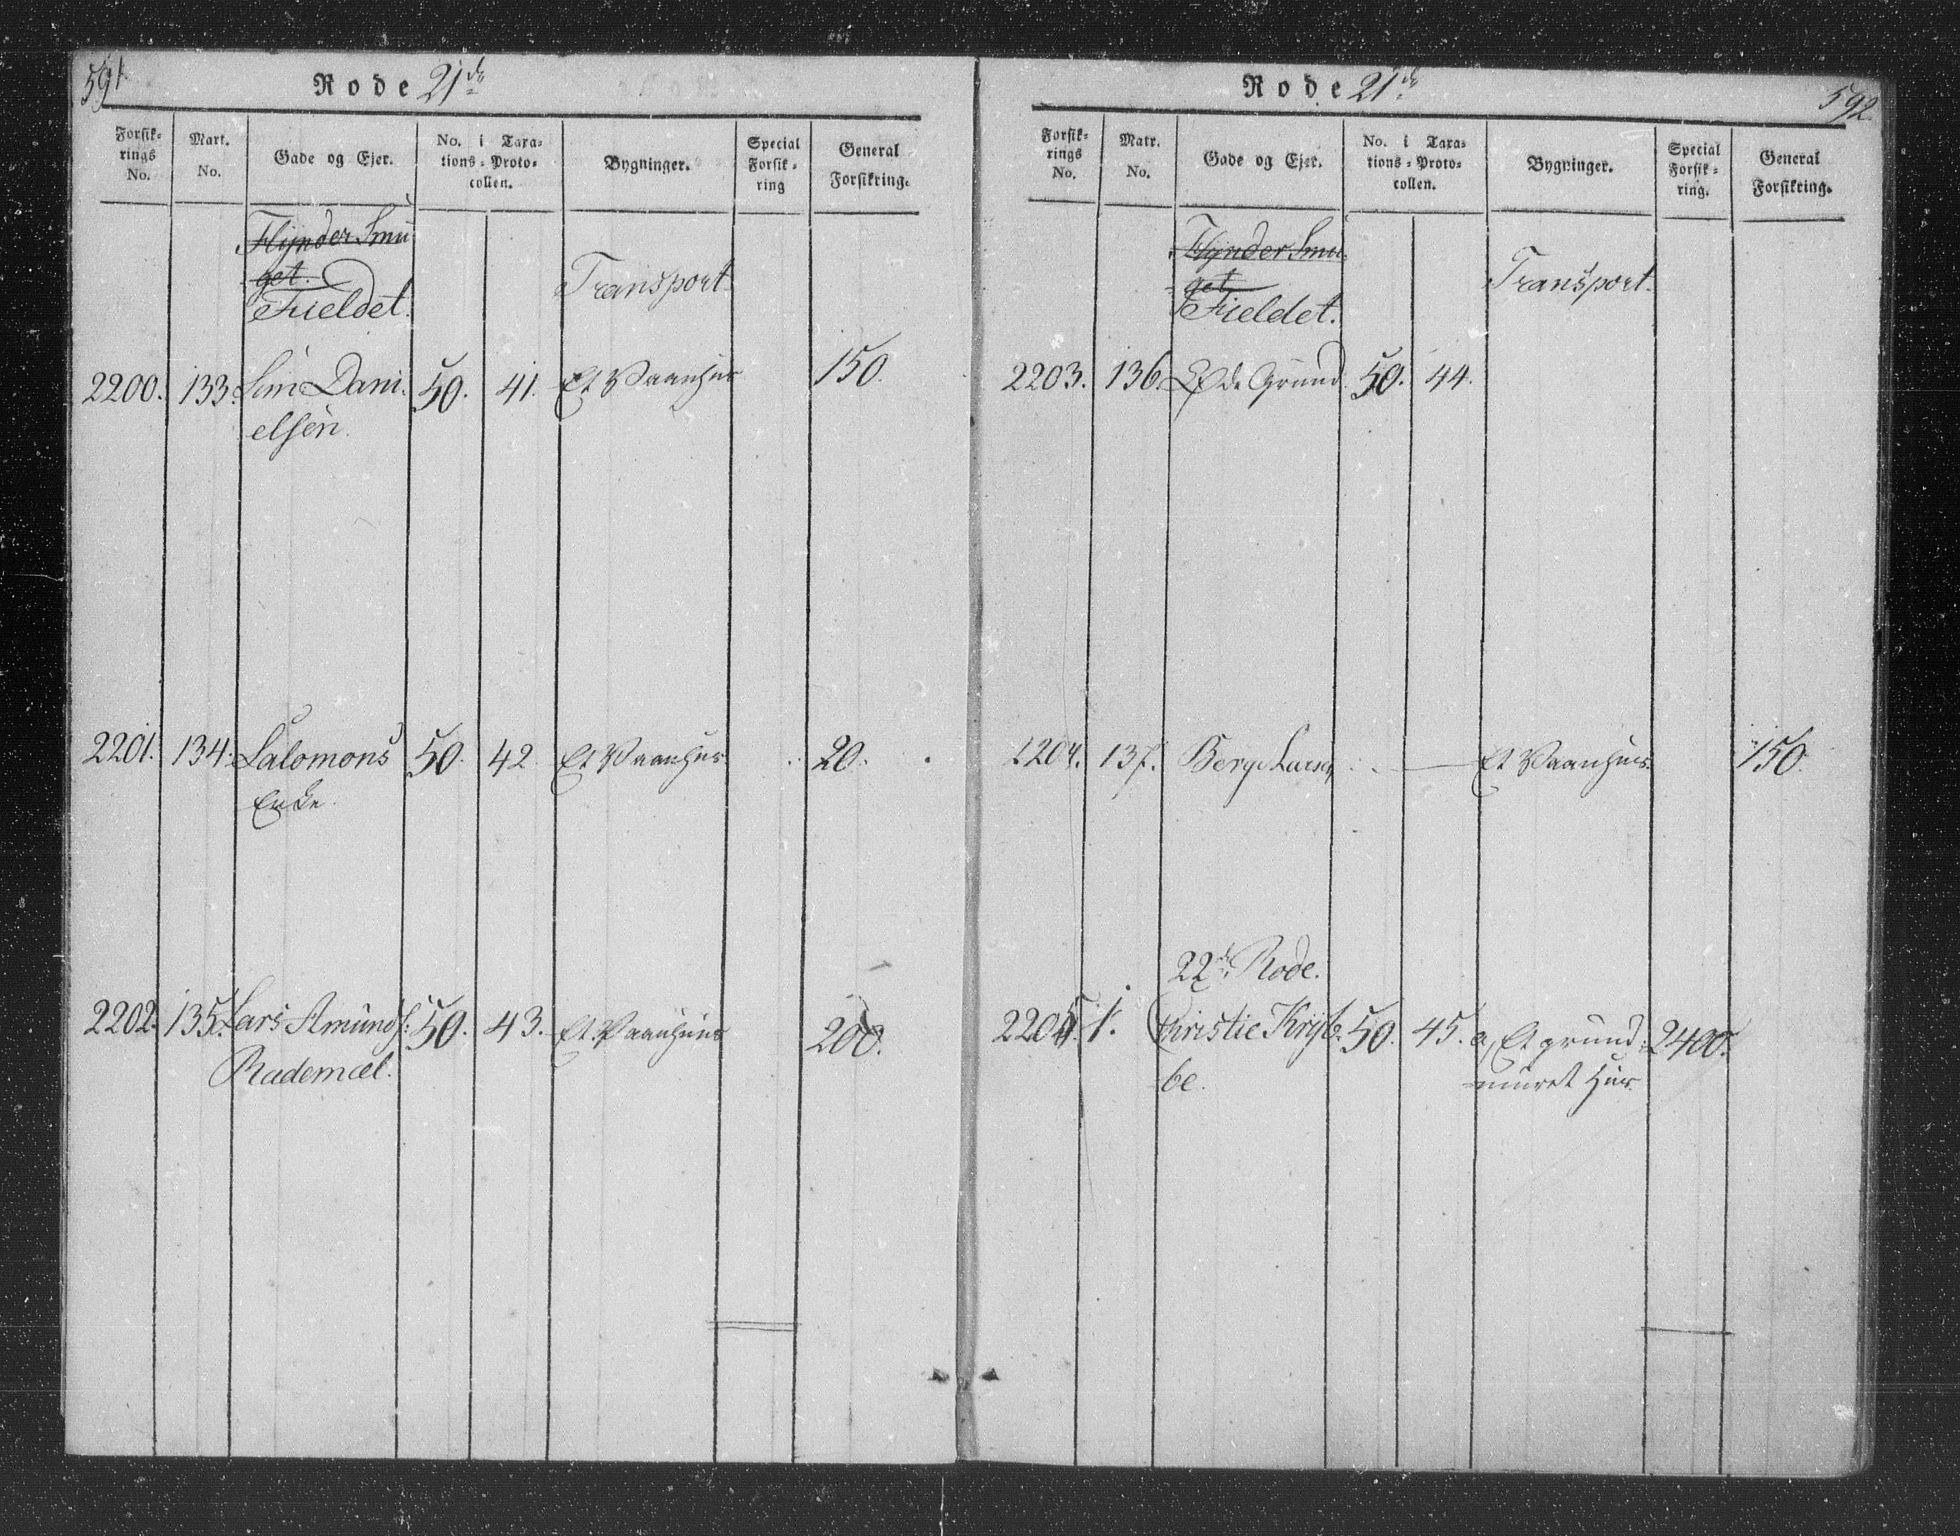 591
Rode 21de
Forsik-
rings
No.
Mart.
No.
Gade og Ejer.
No. i Taxa-
tions-Proto-
collen.
Bygninger.
Special
Forsik-
ring
General
Forsikring.
Flynder Smu
get.
Fieldet.
Transport.
2200. 133. Dani- 50. 41. Et Vaanhus 150.
elsen.
2201. 134. Salomons 50. 42 Et Vaanhus 20.
Enke.
2202. 135. Lars Amunds: 50. 43. Et Vaanhuus 200.
Rademæl.
592.
Rode 21de
Forsik-
rings
No.
Matr.
No.
Gade og Ejer.
No. i Taxa-
tions-Proto-
collen.
Bygninger.
Special
Forsik-
ring.
General
Forsikring.
Flynder Smu
get
Fieldet.
Transport.
2203. 136. Øde Grund. 50. 44.
2204. 137. Berge Larsen Et Vaanhuus. 150.
22de Rode.
2205 1. Christie Kryb- 50. 45. a, Et grund- 2400.
be. muret Huus.